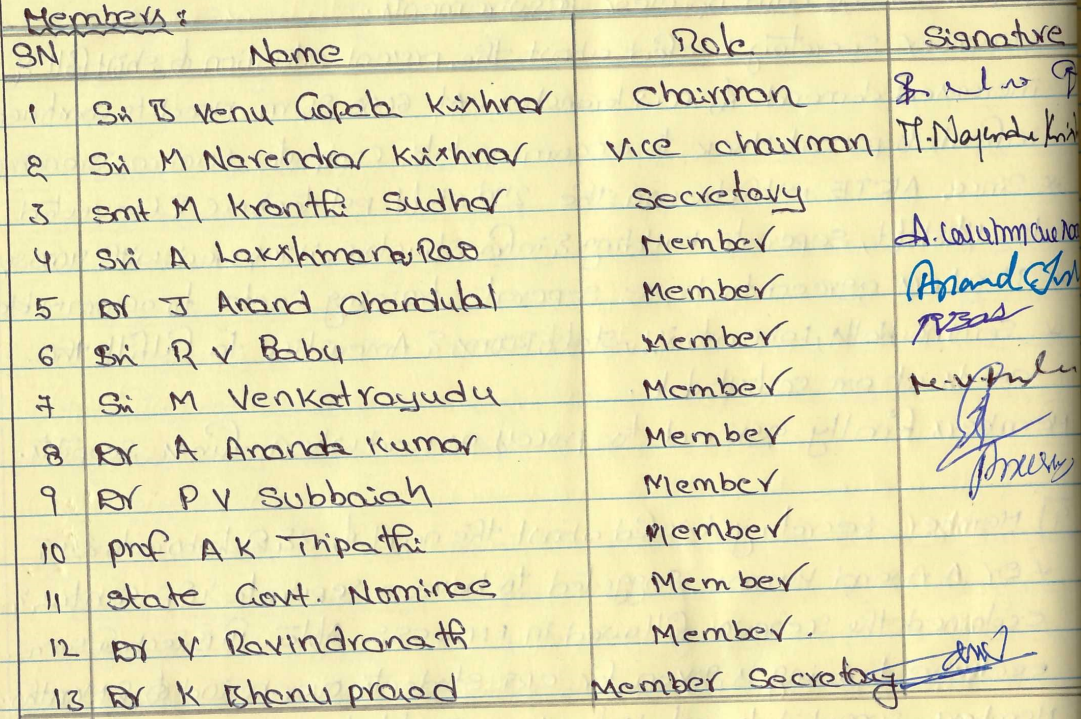 Members :
SN Name Role Signature
1 Sri B Venu Gopala Krishna Chairman
2 Sri M Narendra Krishna Vice chairman
3 Smt M Kranthi Sudha Secretary
4 Sri A Lakshmana Rao Member
5 Dr J Anand Chandulal Member Anand
6 Sri R V Babu Member
7 Sri M Venkatrayudu Member
8 Dr A Ananda Kumar Member
9 Dr P V Subbaiah Member
10 Prof A K Tripathi Member
11 State Govt. Nominee Member
12 Dr V Ravindranath Member.
13 Dr K Bhanu prasad Member Secretary